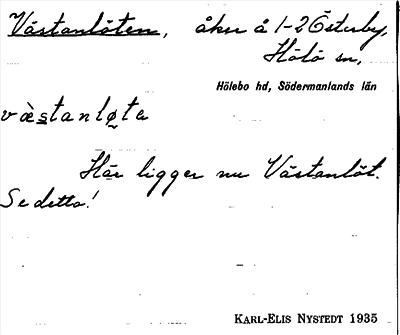 Västanlöten, åker å 1-2 Österby,
Hölö sn,
Hölebo hd, Södermanlands län
væ̀stanlø̨ta
Här ligger nu Västanlöt.
Se detta!
KARL-ELIS NYSTEDT 1935